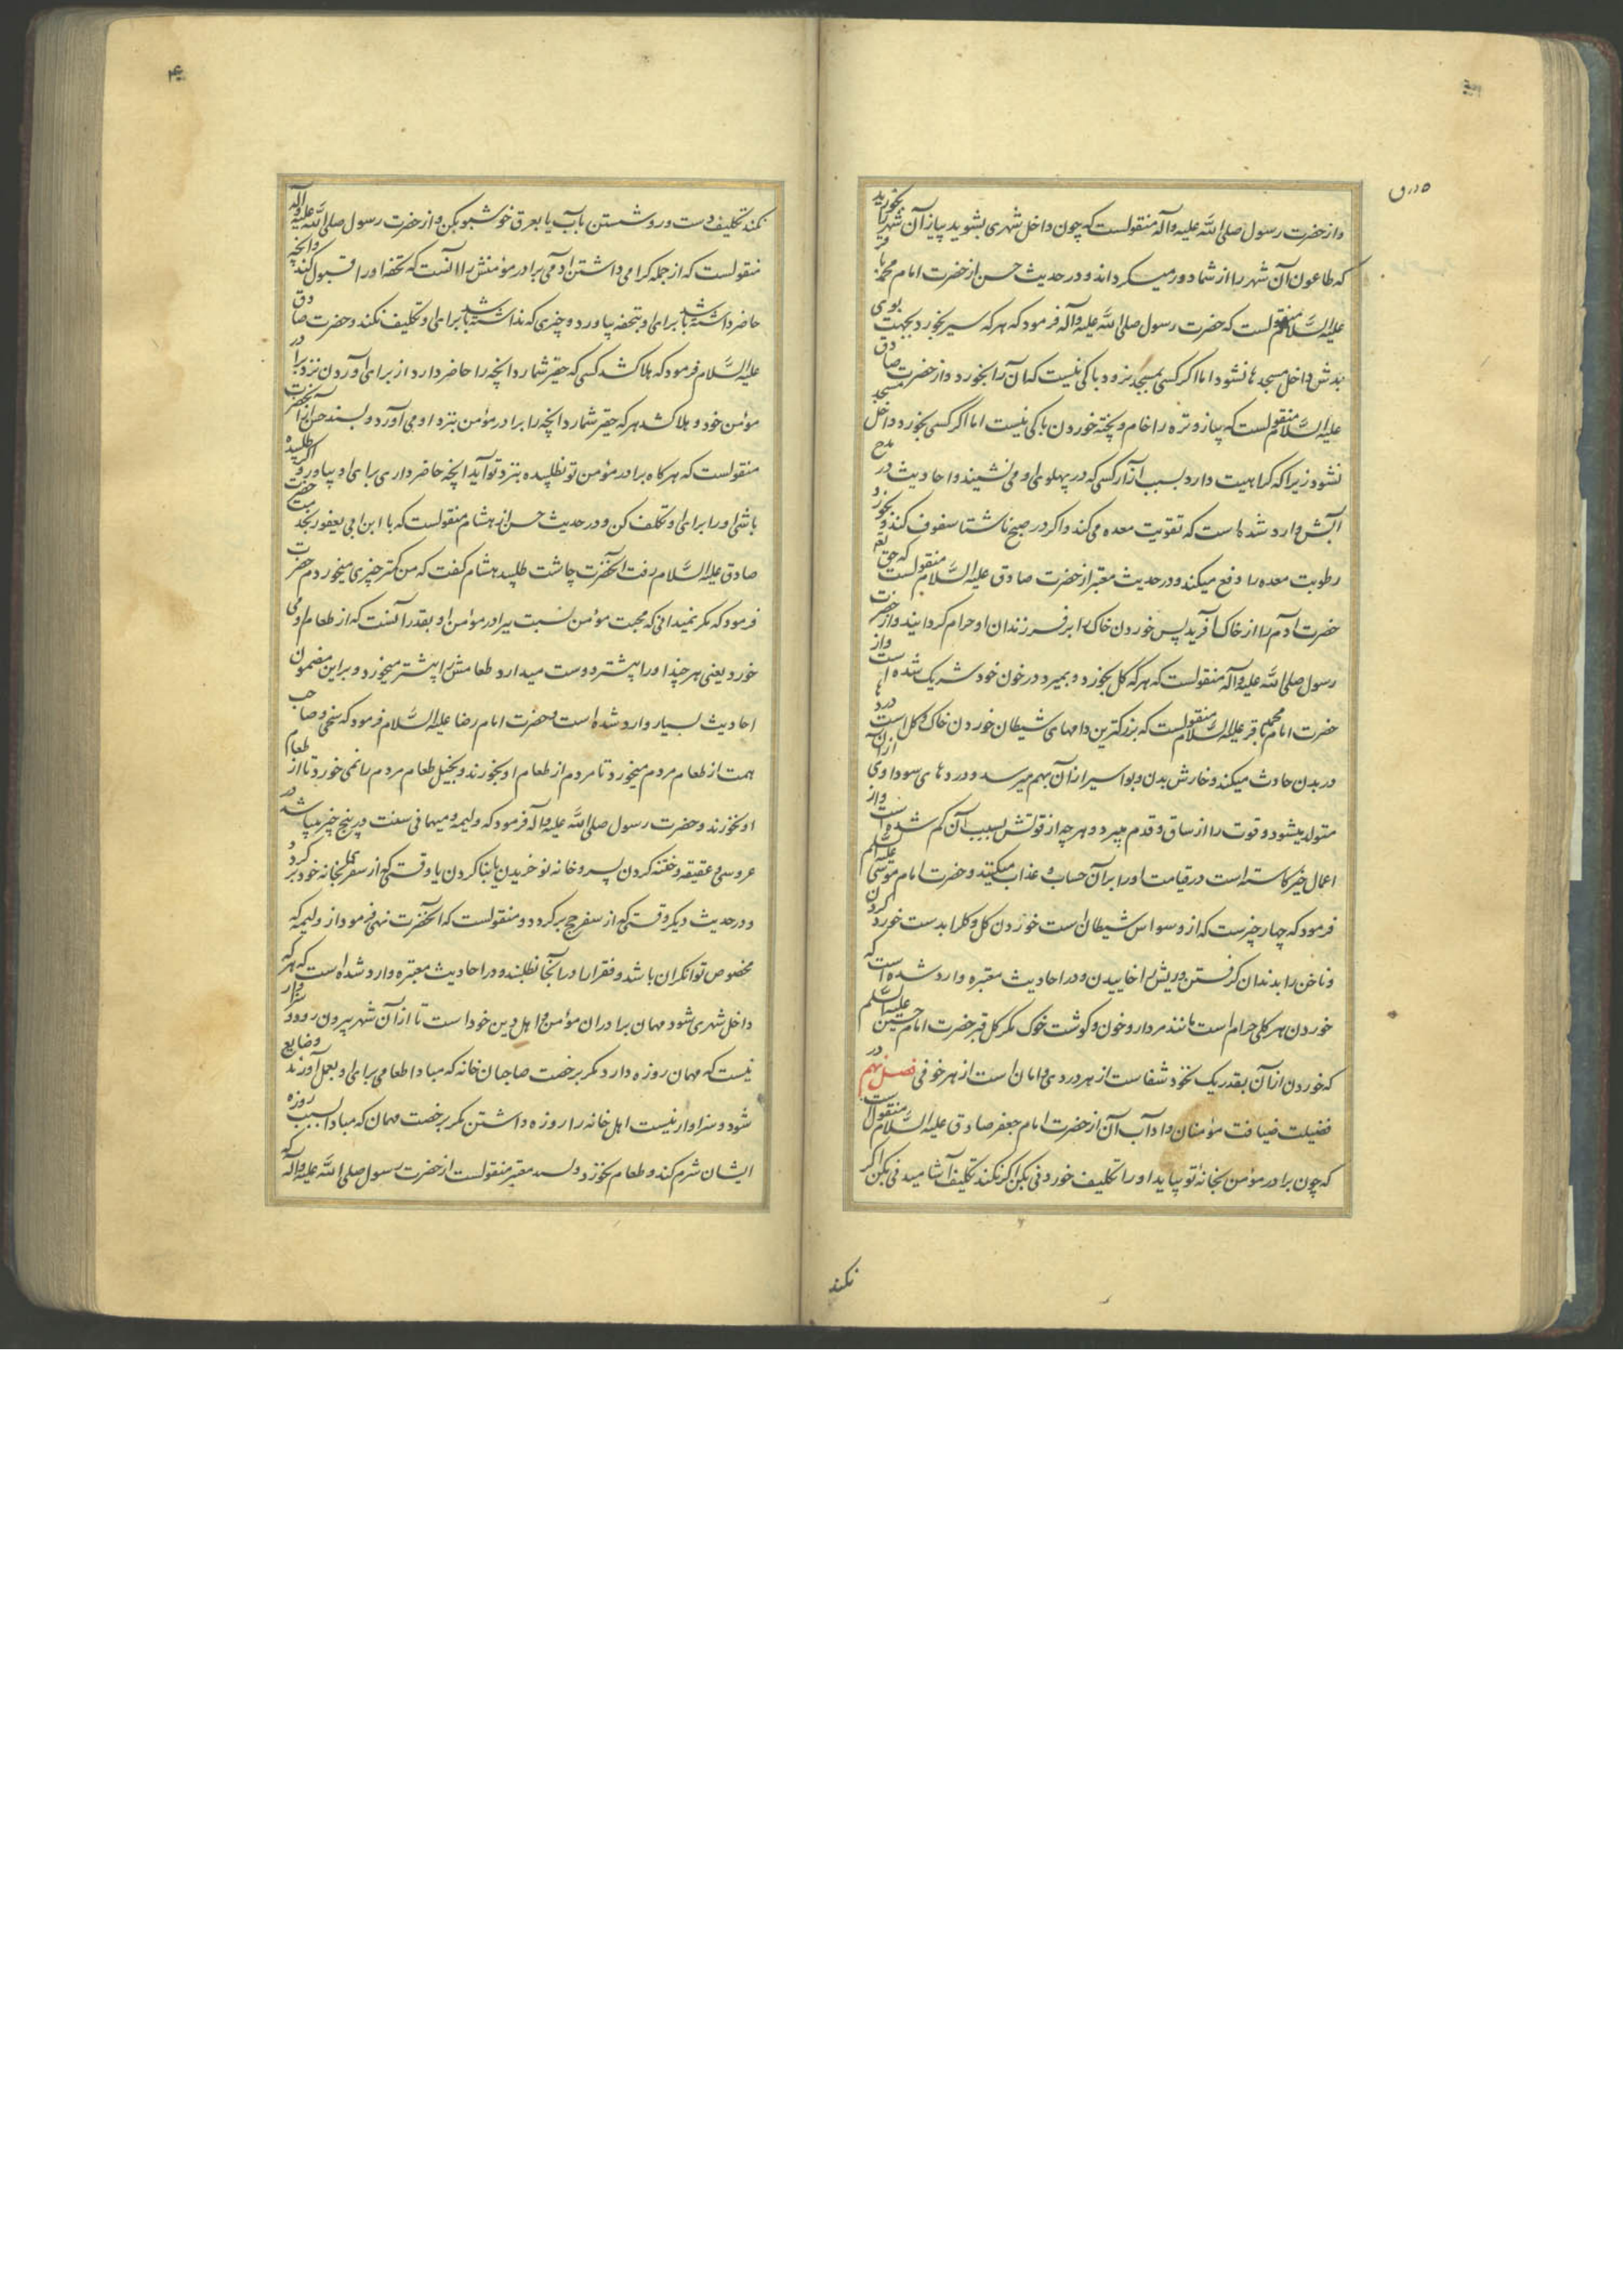 واز حضرت رسول صلی الله علیه وآله منقولست که چون داخل شهری بشوید پیاز آن شهر را بخورید
که طاعون آن شهر را از شما دور میگرداند و در حدیث حسن از حضرت امام محمد باقر
علیه السلام منقولست که حضرت رسول صلی الله علیه وآله فرمود که هر که سیر بخورد بجهت بوی
بدش داخل مسجد ها نشود اما اگر کسی بمسجد نرود باکی نیست که آن را بخورد واز حضرت صادق
علیه السلام منقولست که پیاز و تره را خام و پخته خوردن باکی نیست اما اگر کسی بخورد داخل مسجد
نشود زیرا که کراهیت دارد بسبب آزار کسی که در پهلوی او می نشیند و احادیث در مدح
آبش وارد شده است که تقویت معده می کند و اگر در صبح ناشتا سفوف کند و بخورد
رطوبت معده را دفع میکند و در حدیث معتبر از حضرت صادق علیه السلام منقولست که حق تع
حضرت آدم را از خاک آفرید پس خوردن خاک را بر فرزندان او حرام گردانید واز حضرت
رسول صلی الله علیه وآله منقولست که هر که گل بخورد و بمیرد در خون خود شریک شده است واز
حضرت امام محمد باقر علیه السلام منقولست که بزرگترین دامهای شیطان خوردن خاک و گل است دردها
در بدن حادث میکند و خارش بدن و بواسیر از آن بهم میرسد و درد های سوداوی از آن
متولد میشود و قوت را از ساق و قدم میبرد و هر چه از قوتش بسبب آن کم شده است واز
اعمال خیر کاسته است در قیامت او را بر آن حساب و عذاب میکنند و حضرت امام موسی علیه السلام
فرمود که چهار چیز است که از وسواس شیطان است خوردن گل و کلرا بدست خورد کردن
و ناخن را بدندان گرفتن و ریش را خاییدن و در احادیث معتبره وارد شده است که
خوردن هر گلی حرام است مانند مردار و خون و گوشت خوک مگر گل قبر حضرت امام حسین علیه السلم
که خوردن از آن بقدر یک نخود شفاست از هر دردی و امان است از هر خوفی فصل نهم در
فضیلت ضیافت مؤمنان و آداب آن از حضرت امام جعفر صادق علیه السلام منقولست
که چون برادر مؤمن بخانه تو بیاید او را تکلیف خوردنی بکن اگر نکند تکلیف آشامیدنی بکن اگر
نکند
نکند تکلیف دست و رو شستن بآب یا بعرق خوشبو بکن واز حضرت رسول صلی الله علیه وآله
منقولست که از جمله گرامی داشتن آدمی برادر مؤمنش را آنست که تحفه او را قبول کند وآنچه
حاضر داشته باشد برای او بتحفه بیاورد و چیزی که نداشته باشد برای او تکلیف نکند و حضرت صادق
علیه السلام فرمود که هلاک شد کسی که حقیر شمارد آنچه را حاضر دارد از برای آوردن نزد برادر
مؤمن خود و هلاک شد هر که حقیر شمارد آنچه را برادر مؤمن بنزد او می آورد و بسند حسن از آنحضرت
منقولست که هرگاه برادر مؤمن تو نطلبیده بنزد تو آید آنچه حاضر داری برای او بیاور و اگر طلبیده
باشی او را برای او تکلف کن و در حدیث حسن از هشام منقولست که با ابن ابی یعفور بخدمت حضرت
صادق علیه السلام رفت آنحضرت چاشت طلبید هشام گفت که من کمتر چیزی میخوردم حضرت
فرمود که مگر نمیدانی که محبت مؤمن نسبت ببرادر مؤمن او بقدر آنست که از طعام او می
خورد یعنی هر چند او را بیشتر دوست میدارد طعامش را بیشتر میخورد و بر این مضمون
احادیث بسیار وارد شده است و حضرت امام رضا علیه السلام فرمود که سخی و صاحب
همت از طعام مردم میخورد تا مردم از طعام او بخورند و بخیل طعام مردم را نمی خورد تا از طعام
او نخورند و حضرت رسول صلی الله علیه وآله فرمود که ولیمه و میهمانی سنت در پنج چیز میباشد در
عروسی و عقیقه و ختنه کردن پسر و خانه نو خریدن یا بنا کردن یا وقتی که از سفر مکه بخانه خود بر گردد
و در حدیث دیگر وقتی که از سفر حج برگردد و منقولست که آنحضرت نهی فرمود از ولیمه که
مخصوص توانگران باشد و فقرا را در آنجا نطلبند و در احادیث معتبره وارد شده است که هر که
داخل شهری شود مهمان برادران مؤمن و اهل دین خود است تا از آن شهر بیرون رود و سزاوار
نیست که مهمان روزه دارد مگر برخصت صاحبان خانه که مبادا طعامی برای او بعمل آورند و ضایع
شود و سزاوار نیست اهل خانه را روزه داشتن مگر برخصت مهمان که مبادا بسبب روزه
ایشان شرم کند و طعام نخورد و بسند معتبر منقولست از حضرت رسول صلی الله علیه وآله که